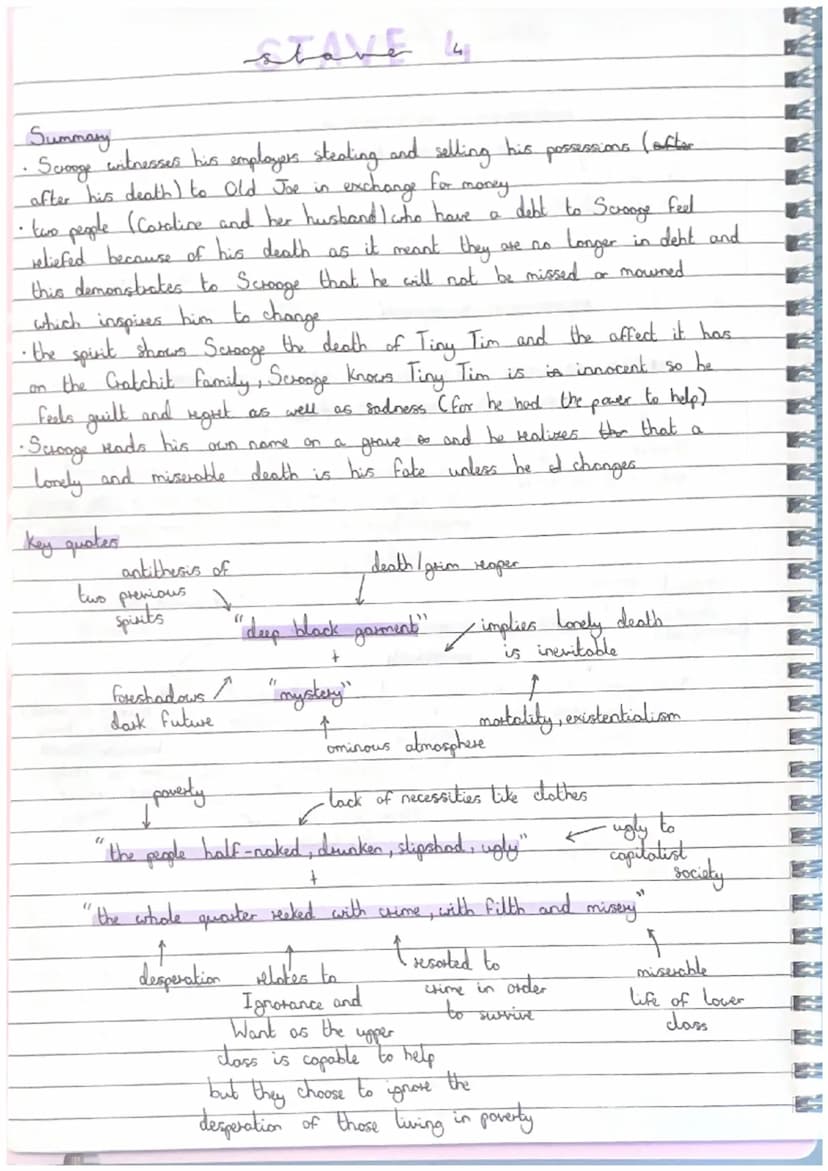 STAVE 4
stave 4
Summary
· Scrooge witnesses his employers stealing and selling his possessions (after
after his death) to Old Joe in exchange for money
· two people (Caroline and her husband) who have a debt to Scrooge feel
reliefed because of his death as it meant they are no longer in debt and
this demonstrates to Scrooge that he will not be missed or mowned
which inspires him to change
· the spirit shows Scrooge the death of Tiny Tim and the affect it has
on the Cratchit family, Scrooge knows Tiny Tim is is innocent so he
feels guilt and regret as well as sadness (for he had the power to help)
· Scrooge reads his own name on a grave and he realizes that a
lonely and miserable death is his fate unless he changes
Key quotes
antithesis of
two previous
spirits
death/grim reaper
"deep black garment"
+
"mystery"
implies lonely death
is inevitable
foreshadows
dark future
mortality, existentialism
ominous atmosphere
poverty
lack of necessities like clothes
"the people half-naked, drunken, slipshod, ugly"
ugly to
capitalist
society
+
"the whole quarter reeked with crime, with filth and misery"
desperation
relates to
Ignorance and
Want as the upper
class is capable to help
but they choose to ignore the
desperation of those living in poverty
resorted to
crime in order
to survive
miserable
life of lower
class